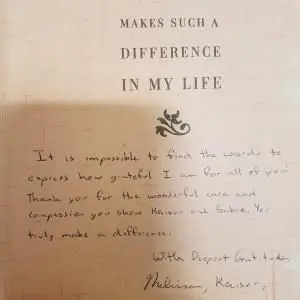 MAKES SUCH A
DIFFERENCE
IN MY LIFE
It is impossible to find the words to
express how grateful I am for all of you!
Thank you for the wonderful care and
compassion you show Kaiser and Sabre. You
truly make a difference.
With Deepest Gratitude,
Melissa, Kaiser,